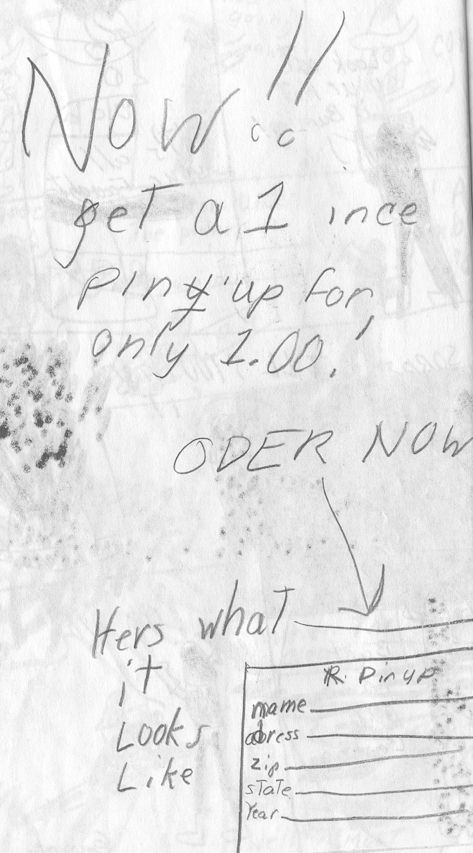 Now!!
get a 1 ince
Piny'up for
only 1.00!
ODER NOW
Hers what
it
Looks
Like
R. Pinup
name
adress
zip
state
Year